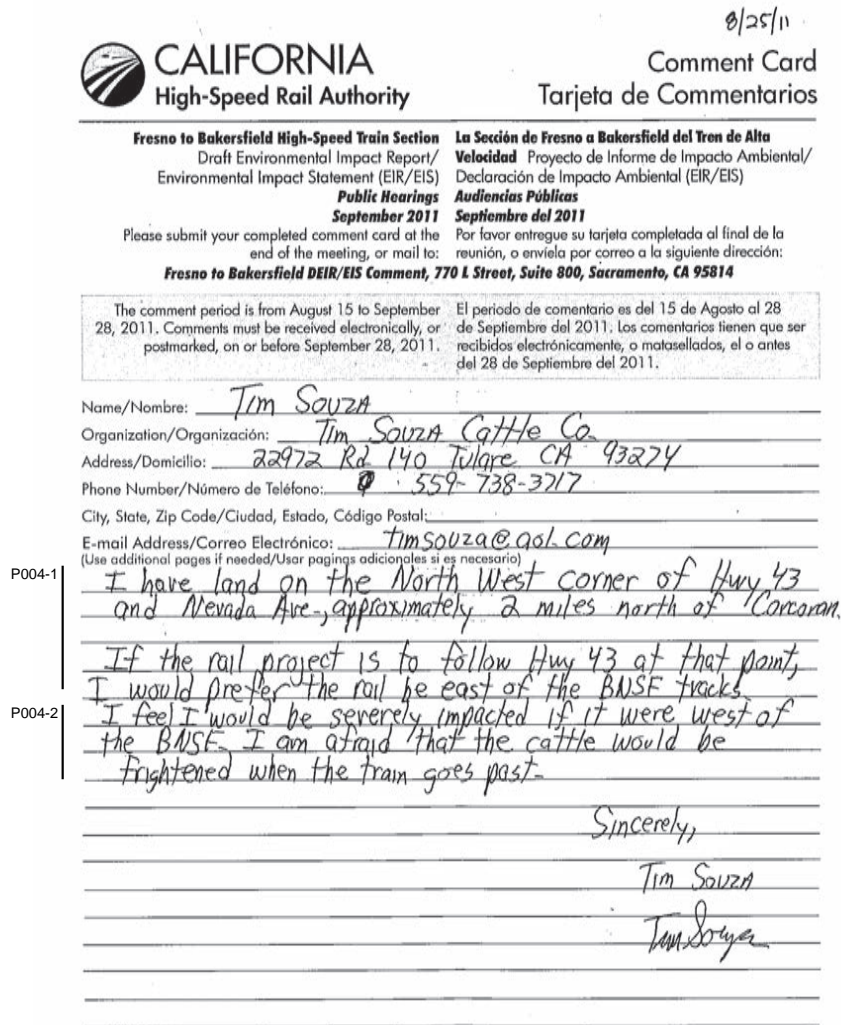 8/25/11
CALIFORNIA
High-Speed Rail Authority
Comment Card
Tarjeta de Commentarios
Fresno to Bakersfield High-Speed Train Section
Draft Environmental Impact Report/
Environmental Impact Statement (EIR/EIS)
Public Hearings
September 2011
Please submit your completed comment card at the
end of the meeting, or mail to:
La Sección de Fresno a Bakersfield del Tren de Alta
Velocidad Proyecto de Informe de Impacto Ambiental/
Declaración de Impacto Ambiental (EIR/EIS)
Audiencias Públicas
Septiembre del 2011
Por favor entregue su tarjeta completada al final de la
reunión, o envíela por correo a la siguiente dirección:
Fresno to Bakersfield DEIR/EIS Comment, 770 L Street, Suite 800, Sacramento, CA 95814
The comment period is from August 15 to September
28, 2011. Comments must be received electronically, or
postmarked, on or before September 28, 2011.
El periodo de comentario es del 15 de Agosto al 28
de Septiembre del 2011. Los comentarios tienen que ser
recibidos electrónicamente, o matasellados, el o antes
del 28 de Septiembre del 2011.
Name/Nombre: Tim Souza
Organization/Organización: Tim Souza Cattle Co.
Address/Domicilio: 22972 Rd 140 Tulare CA 93274
Phone Number/Número de Teléfono: 559-738-3717
City, State, Zip Code/Ciudad, Estado, Código Postal:
E-mail Address/Correo Electrónico: timsouza@aol.com
(Use additional pages if needed/Usar pagings adicionales si es necesario)
P004-1
I have land on the North West corner of Hwy 43
and Nevada Ave., approximately 2 miles north of Corcoran.
If the rail project is to follow Hwy 43 at that point,
I would prefer the rail be east of the BNSF tracks.
P004-2
I feel I would be severely impacted if it were west of
the BNSF. I am afraid that the cattle would be
frightened when the train goes past.
Sincerely,
Tim Souza
Tim Souza